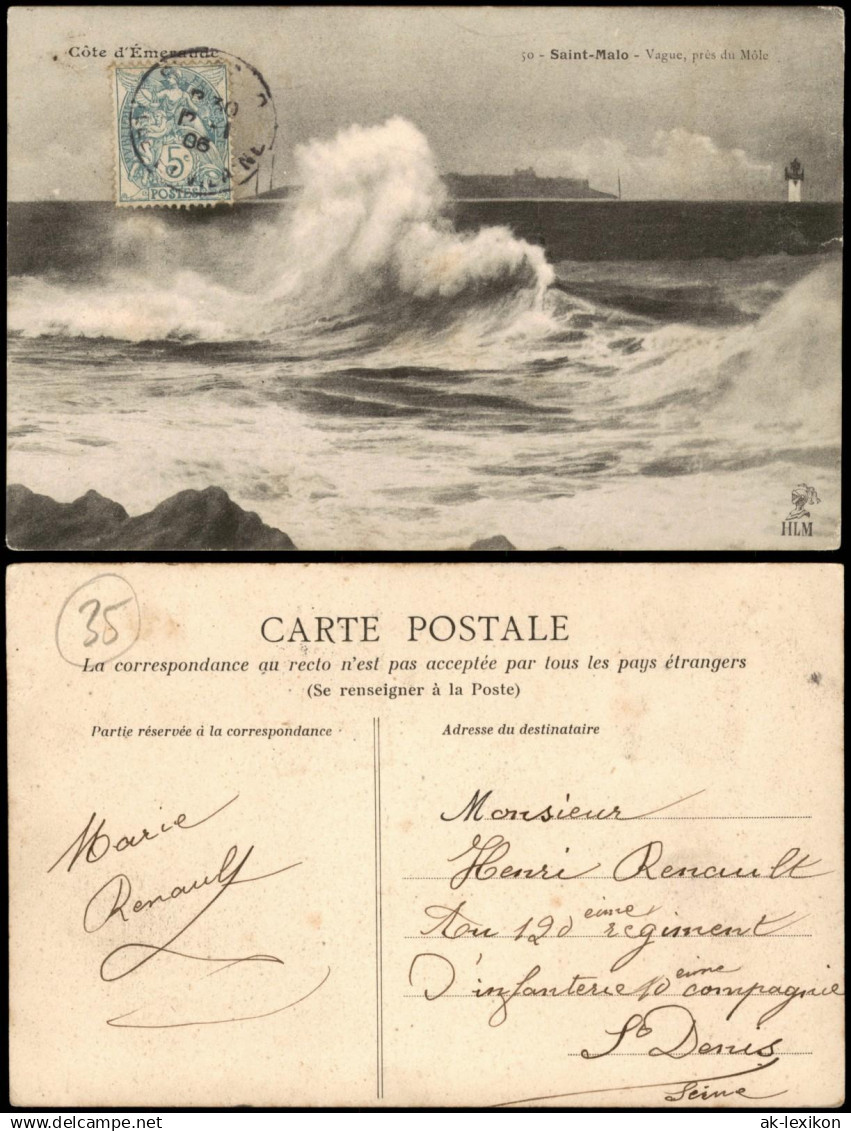 Côte d'Émeraude
50 - Saint-Malo - Vague, près du Môle
5c
POSTES
30
06
HLM
35
CARTE POSTALE
La correspondance au recto n'est pas acceptée par tous les pays étrangers
(Se renseigner à la Poste)
Partie réservée à la correspondance
Marie
Renault
Adresse du destinataire
Monsieur
Henri Renault
Au 120 eme regiment
D'infanterie 10 eme compagnie
St Denis
Seine
ak-lexikon